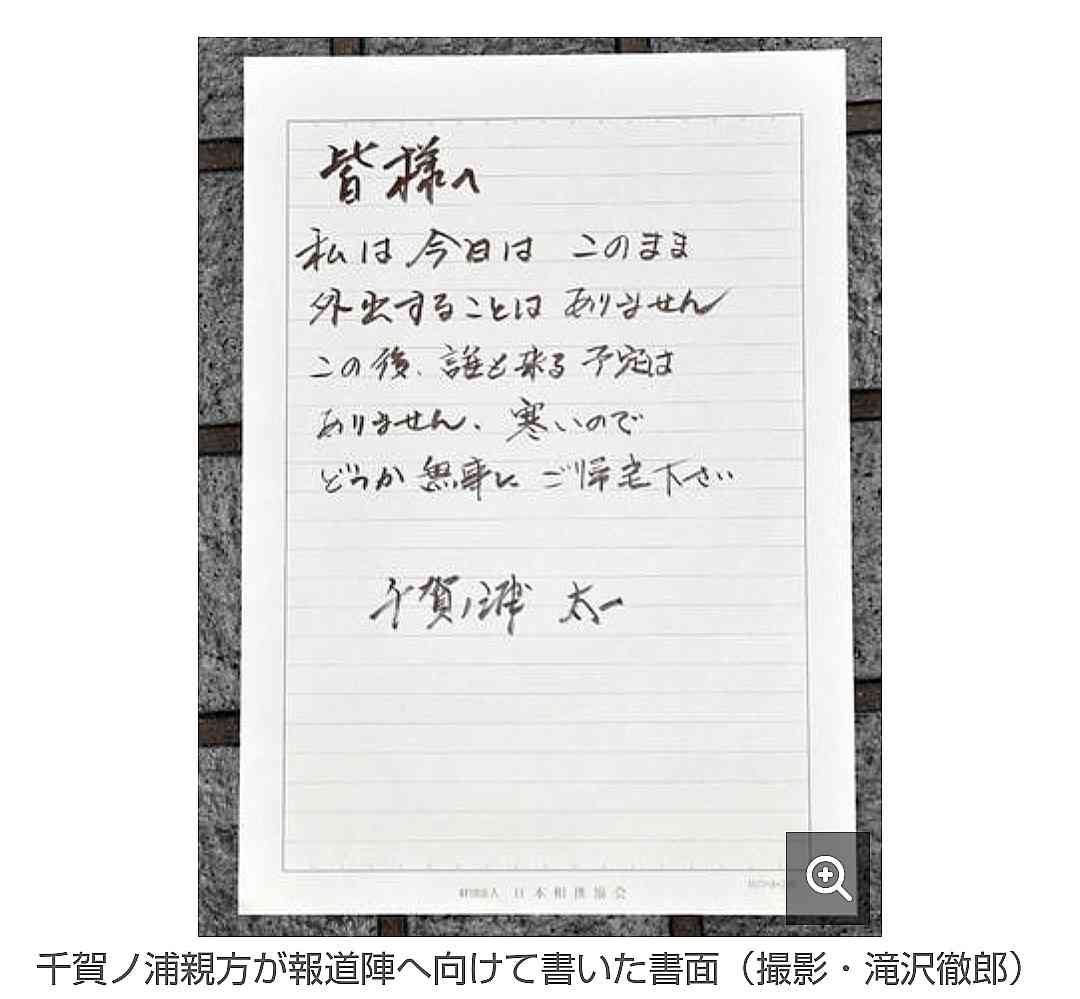 皆様へ
私は今日は このまま
外出することは ありません
この後、誰も来る予定は
ありません、寒いので
どうか無事に ご帰宅下さい
千賀ノ浦 太一
財団法人 日本相撲協会
千賀ノ浦親方が報道陣へ向けて書いた書面（撮影・滝沢徹郎）